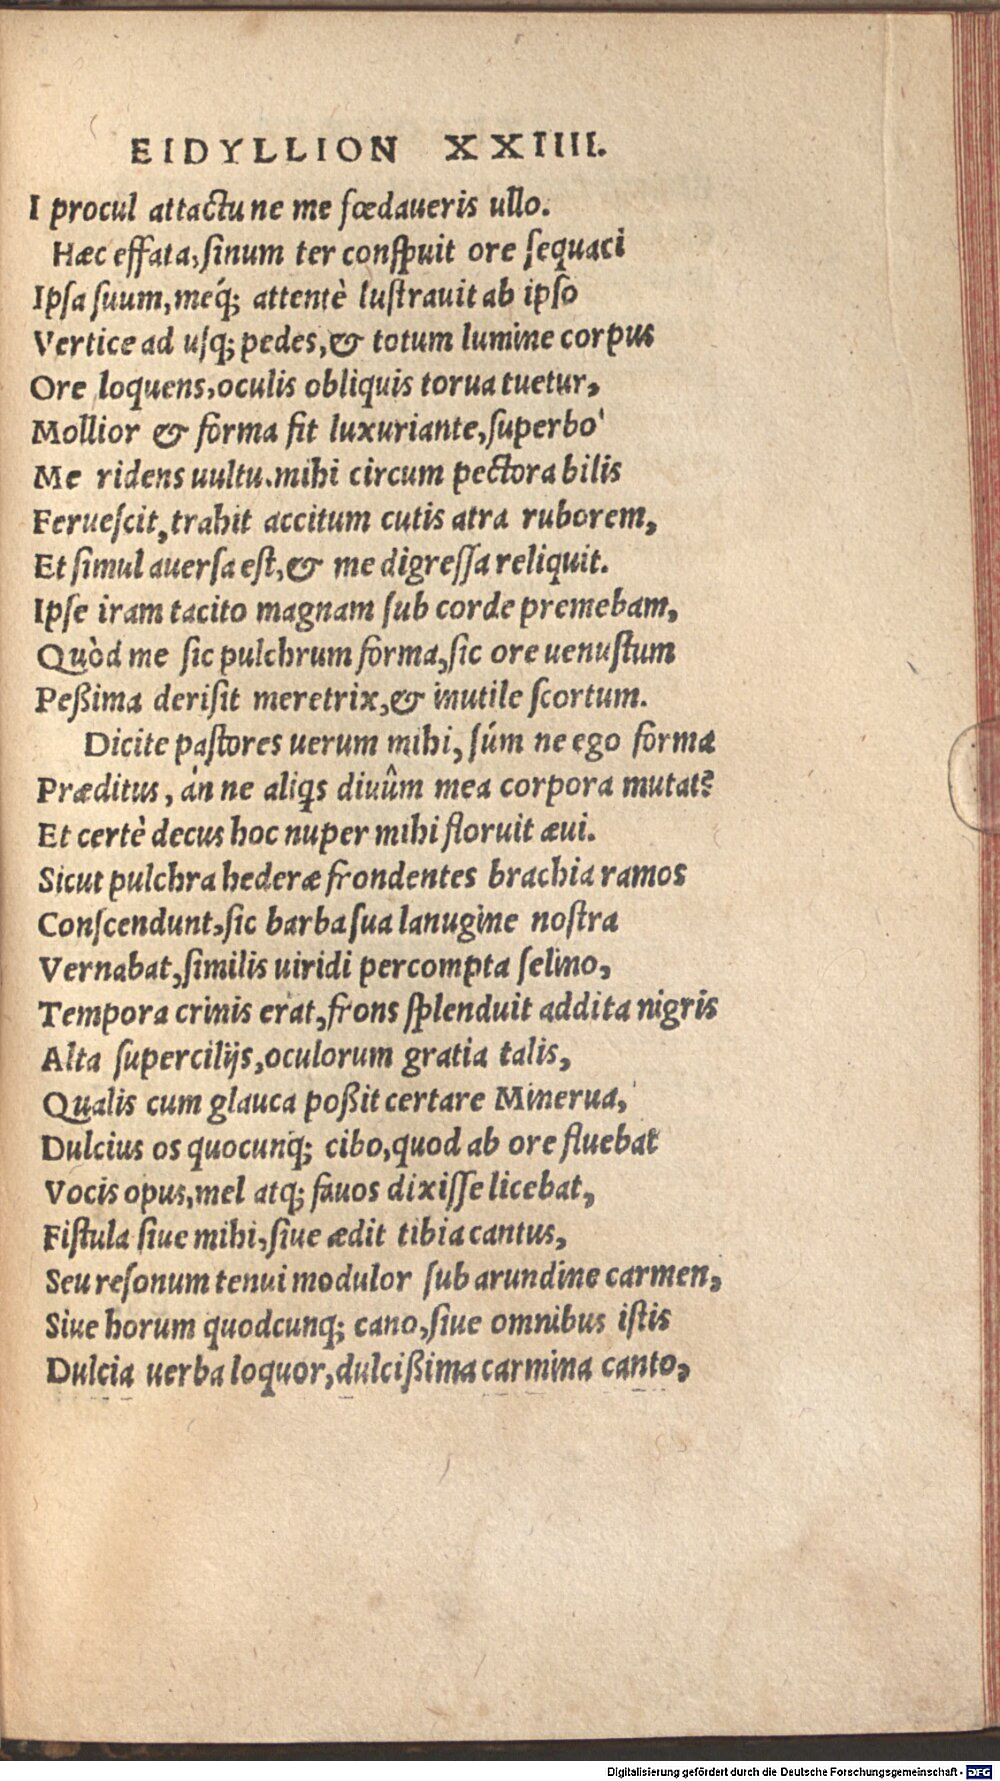 EIDYLLION XXIIII.
I procul attactu ne me fœdaueris ullo.
Hæc effata, sinum ter conspuit ore sequaci
Ipsa suum, meq́; attentè lustrauit ab ipso
Vertice ad usq; pedes, & totum lumine corpus
Ore loquens, oculis obliquis torua tuetur,
Mollior & forma fit luxuriante, superbo
Me ridens uultu. mihi circum pectora bilis
Feruescit, trahit accitum cutis atra ruborem,
Et simul auersa est, & me digressa reliquit.
Ipse iram tacito magnam sub corde premebam,
Quòd me sic pulchrum forma, sic ore uenustum
Peßima derisit meretrix, & inutile scortum.
Dicite pastores uerum mihi, súm ne ego forma
Præditus, án ne aliqs diuûm mea corpora mutat?
Et certè decus hoc nuper mihi floruit æui.
Sicut pulchra hederæ frondentes brachia ramos
Conscendunt, sic barba sua lanugine nostra
Vernabat, similis uiridi percompta selino,
Tempora crinis erat, frons splenduit addita nigris
Alta supercilijs, oculorum gratia talis,
Qualis cum glauca poßit certare Minerua,
Dulcius os quocunq́; cibo, quod ab ore fluebat
Vocis opus, mel atq; fauos dixisse licebat,
Fistula siue mihi, siue ædit tibia cantus,
Seu resonum tenui modulor sub arundine carmen,
Siue horum quodcunq; cano, siue omnibus istis
Dulcia uerba loquor, dulcißima carmina canto,
Digitalisierung gefördert durch die Deutsche Forschungsgemeinschaft - DFG